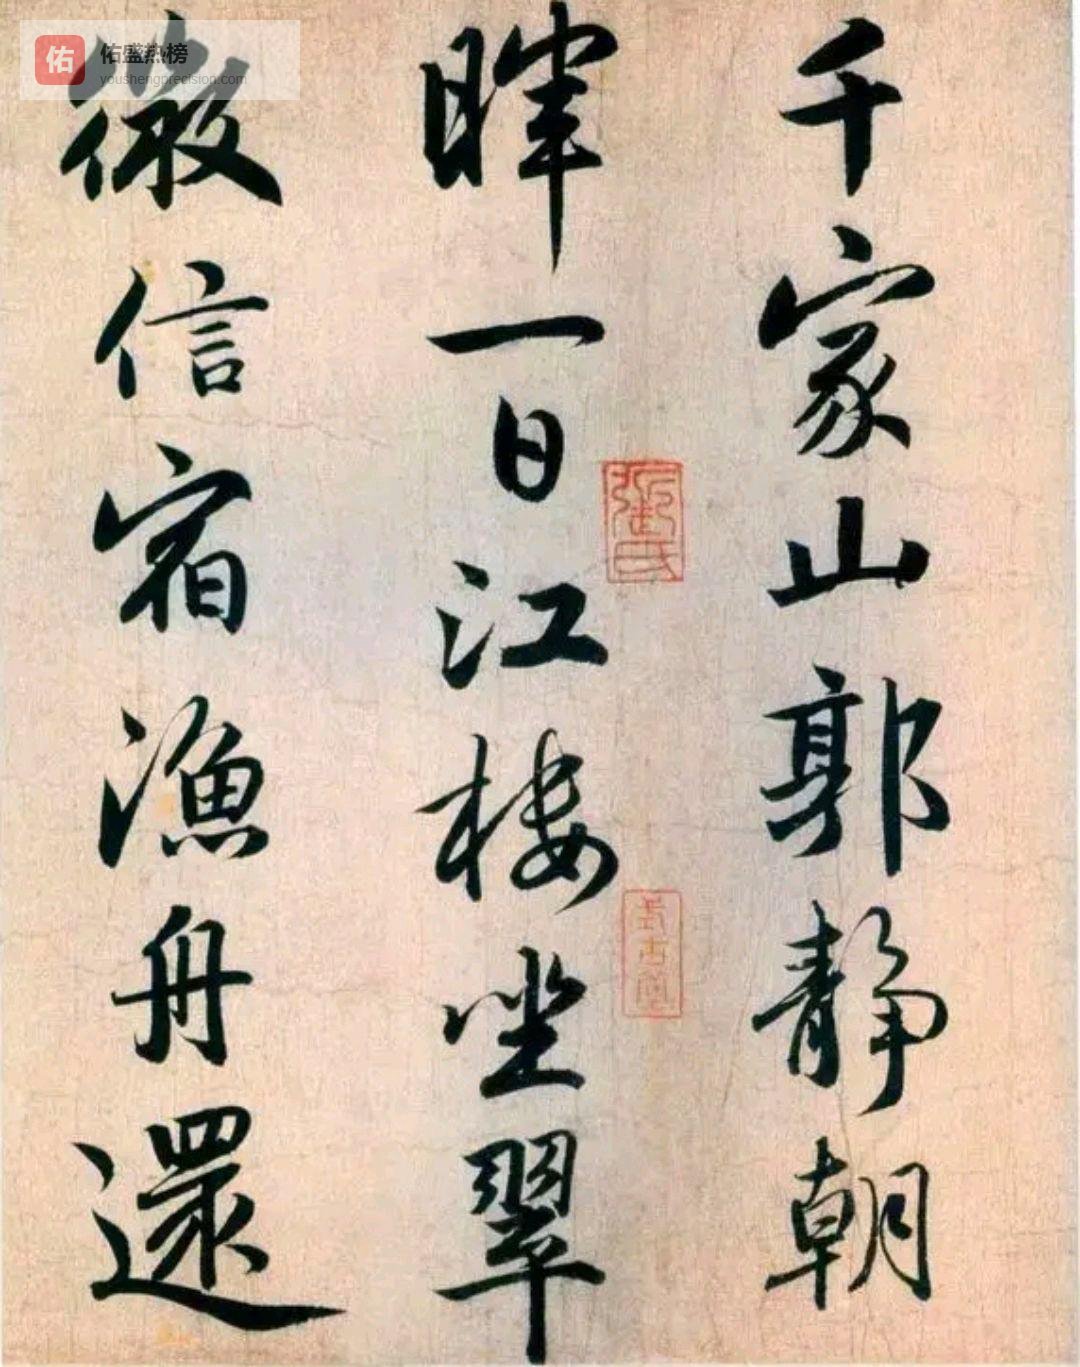 千家山郭静朝
暉一日江楼坐翠
微信宿漁舟還
佑
佑盛热榜
youshengprecision.com